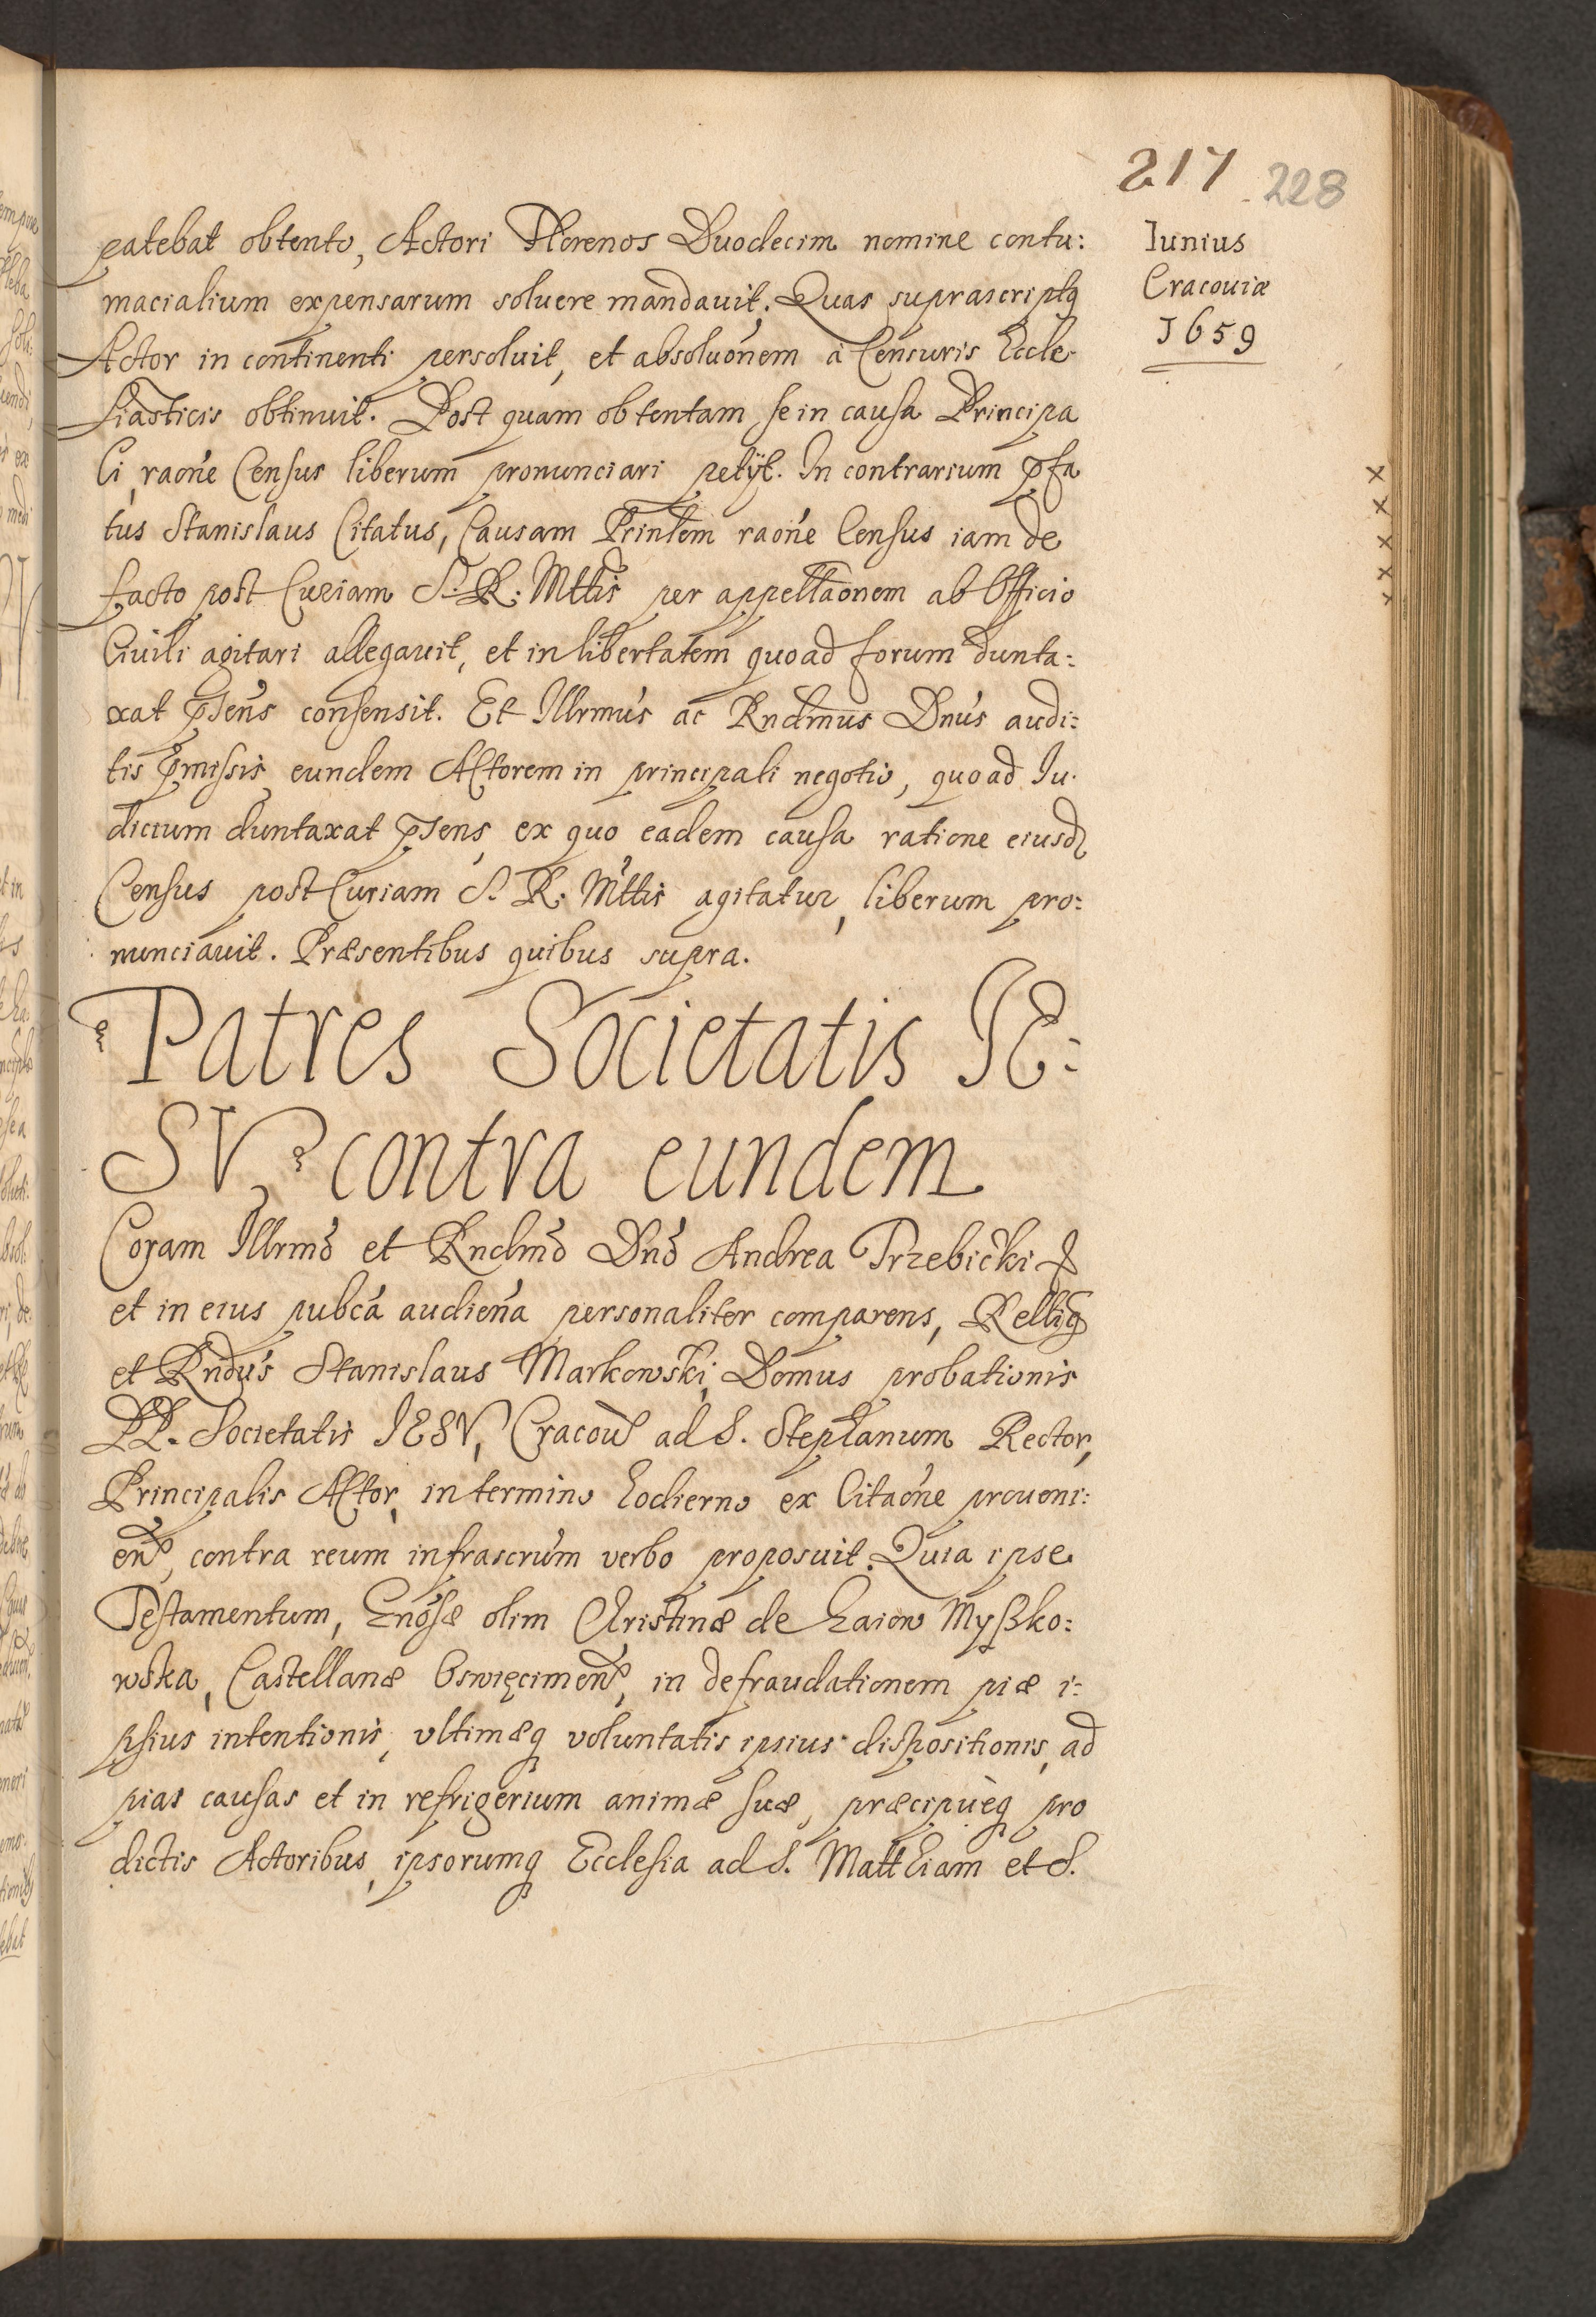 217 228
Iunius
Cracouiæ
1659
patebat obtento, Actori Florenos Duodecim nomine contu:
macialium expensarum soluere mandauit. Quas suprascriptq
Actor in continenti persoluit, et absoluónem à Censuris Eccle
siasticis obtinuit. Post quam obtentam se in causa Principa
li, raoné Census liberum pronunciari petÿt. In contrarium p̄fa
tus Stanislaus Citatus, Causam Prinlem raoné Census iam de
facto post Curiam S. R. Mttis per appellaonem ab Officio
Ciuili agitari allegauit, et in libertatem quoad forum dunta:
xat p̄sens consensit. Et Illrmús ac Rndmus Dnús audi:
tis p̄missis eundem Actorem in principali negotio, quoad Iu.
dicium duntaxat p̄sens, ex quo eadem causa ratione eiusd
Census post Curiam S. R. Mttis agitatur, liberum pro:
nunciauit. Præsentibus quibus supra.
Patres Societatis IE:
SV, contra eundem
Coram Illrmó et Rndmó Dnó Andrea Trzebicki &
et in eius pubcá audiená personaliter comparens, Rellig
et Rndús Stanislaus Markowski, Domus probationis
PP. Societatis IESV, Cracou ad S. Stephanum Rector,
Principalis Actor, in termino hodierno ex Citaóne proueni:
en, contra reum infrascrúm verbo proposuit. Quia ipse
Testamentum, Gnósæ olim Christinæ de Zaiow Myßko:
wska, Castellanæ Oswięcimen, in defraudationem piæ i:
psius intentionis, vltimæq voluntatis ipsius dispositionis, ad
pias causas et in refrigerium animæ suæ, præcipuèq pro
dictis Actoribus, ipsorumq Ecclesia ad S. Matthiam et S.